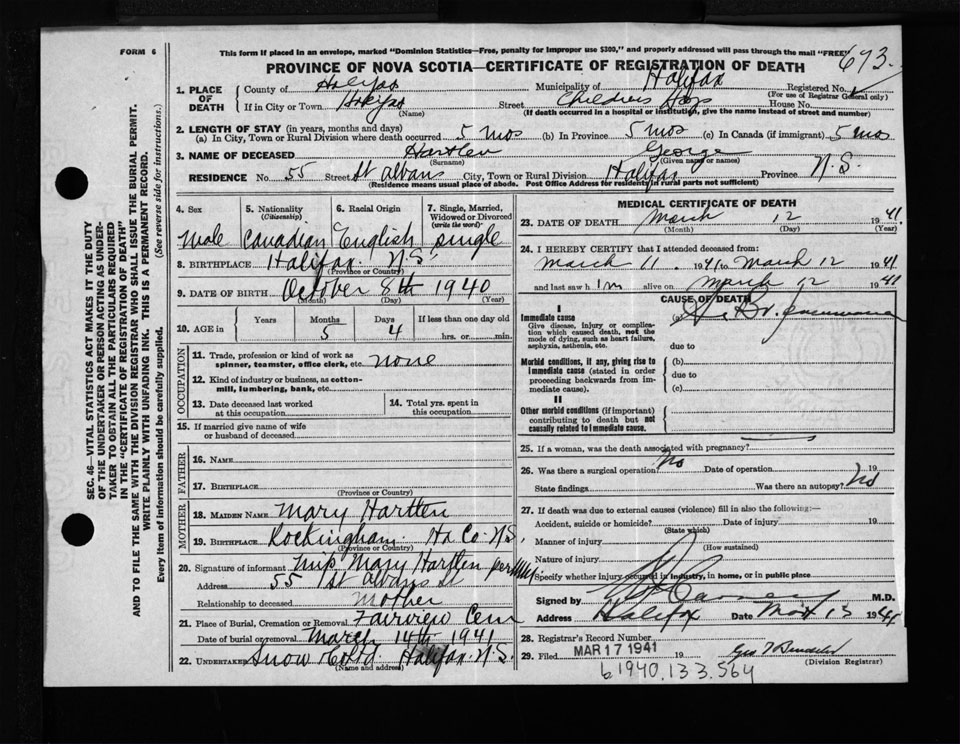 FORM 6
This form if placed in an envelope, marked "Dominion Statistics—Free, penalty for improper use $300," and properly addressed will pass through the mail "FREE"
673.
PROVINCE OF NOVA SCOTIA—CERTIFICATE OF REGISTRATION OF DEATH
1. PLACE OF DEATH
County of Halifax Municipality of Halifax Registered No.
(For use of Registrar General only)
If in City or Town Halifax Street Childrens Hosp House No.
(Name) (If death occurred in a hospital or institution, give the name instead of street and number)
2. LENGTH OF STAY (in years, months and days)
(a) In City, Town or Rural Division where death occurred 5 mos (b) In Province 5 mos (c) In Canada (if immigrant) 5 mos
3. NAME OF DECEASED Hartlen George
(Surname) (Given name or names)
RESIDENCE No. 55 Street St Albans City, Town or Rural Division Halifax Province N.S.
(Residence means usual place of abode. Post Office Address for residents in rural parts not sufficient)
4. Sex Male
5. Nationality (Citizenship) Canadian
6. Racial Origin English
7. Single, Married, Widowed or Divorced (write the word) Single
8. BIRTHPLACE Halifax N.S.
(Province or Country)
9. DATE OF BIRTH October 8th 1940
(Month) (Day) (Year)
10. AGE in Years Months 5 Days 4 If less than one day old hrs. or min.
OCCUPATION
11. Trade, profession or kind of work as spinner, teamster, office clerk, etc. none
12. Kind of industry or business, as cotton-mill, lumbering, bank, etc.
13. Date deceased last worked at this occupation
14. Total yrs. spent in this occupation
15. If married give name of wife or husband of deceased
FATHER
16. NAME
17. BIRTHPLACE
(Province or Country)
MOTHER
18. MAIDEN NAME Mary Hartlen
19. BIRTHPLACE Rockingham Hx Co. N.S.
(Province or Country)
20. Signature of informant Miss Mary Hartlen per
Address 55 St Albans St
Relationship to deceased mother
21. Place of Burial, Cremation or Removal Fairview Cem
Date of burial or removal March 14th 1941
22. UNDERTAKER Snow & Co Ltd. Halifax. N.S.
(Name and address)
MEDICAL CERTIFICATE OF DEATH
23. DATE OF DEATH March 12 1941
(Month) (Day) (Year)
24. I HEREBY CERTIFY that I attended deceased from:
March 11. 1941 to March 12 1941
and last saw him alive on March 12 1941
CAUSE OF DEATH
I
Immediate cause
Give disease, injury or complication which caused death, not the mode of dying, such as heart failure, asphyxia, asthenia, etc.
(a) pneumonia
due to
Morbid conditions, if any, giving rise to immediate cause (stated in order proceeding backwards from immediate cause).
(b)
due to
(c)
II
Other morbid conditions (if important) contributing to death but not causally related to immediate cause.
25. If a woman, was the death associated with pregnancy?
26. Was there a surgical operation? No Date of operation 19
State findings Was there an autopsy? No
27. If death was due to external causes (violence) fill in also the following:—
Accident, suicide or homicide? Date of injury 19
(State which)
Manner of injury
(How sustained)
Nature of injury
Specify whether injury occurred in industry, in home, or in public place
Signed by M.D.
Address Halifax Date Mar 13 1941
28. Registrar's Record Number
29. Filed MAR 17 1941 19
(Division Registrar)
61940.133.564
SEC. 46—VITAL STATISTICS ACT MAKES IT THE DUTY
OF THE UNDERTAKER OR PERSON ACTING AS UNDER-
TAKER TO OBTAIN ALL THE PARTICULARS REQUIRED
IN THE "CERTIFICATE OF REGISTRATION OF DEATH"
AND TO FILE THE SAME WITH THE DIVISION REGISTRAR WHO SHALL ISSUE THE BURIAL PERMIT.
WRITE PLAINLY WITH UNFADING INK. THIS IS A PERMANENT RECORD.
Every item of information should be carefully supplied. (See reverse side for instructions.)